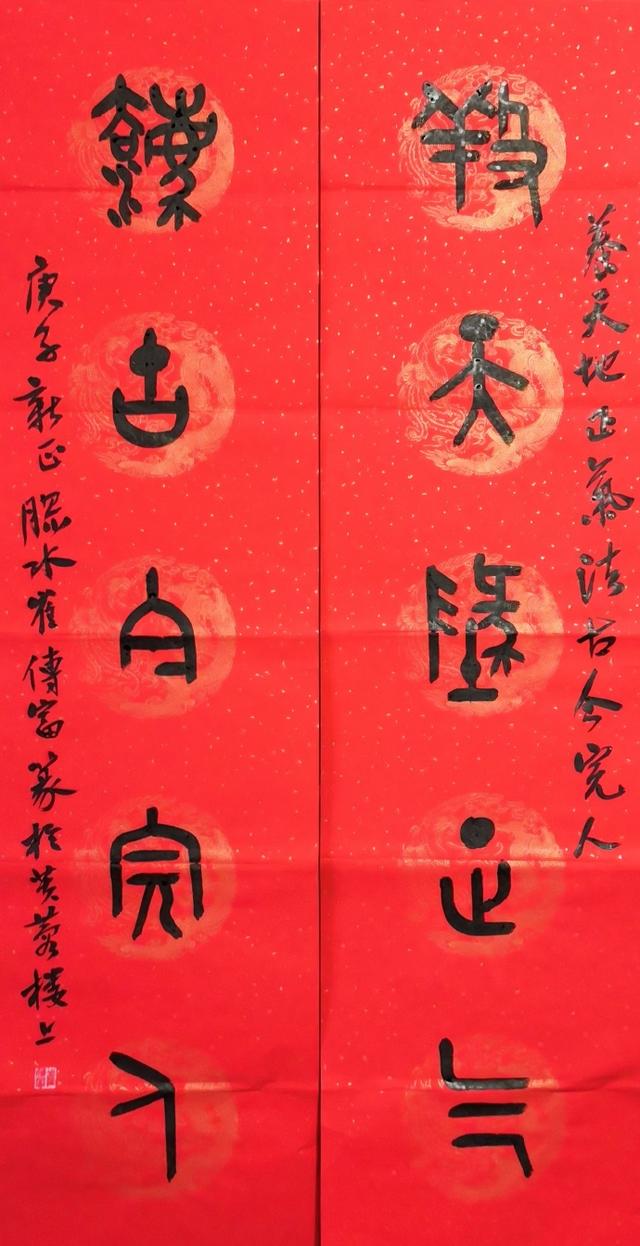 養天地正氣法古今完人
養天地正气
灋古今完人
庚子新正膠水崔傳富篆於芙蓉樓上